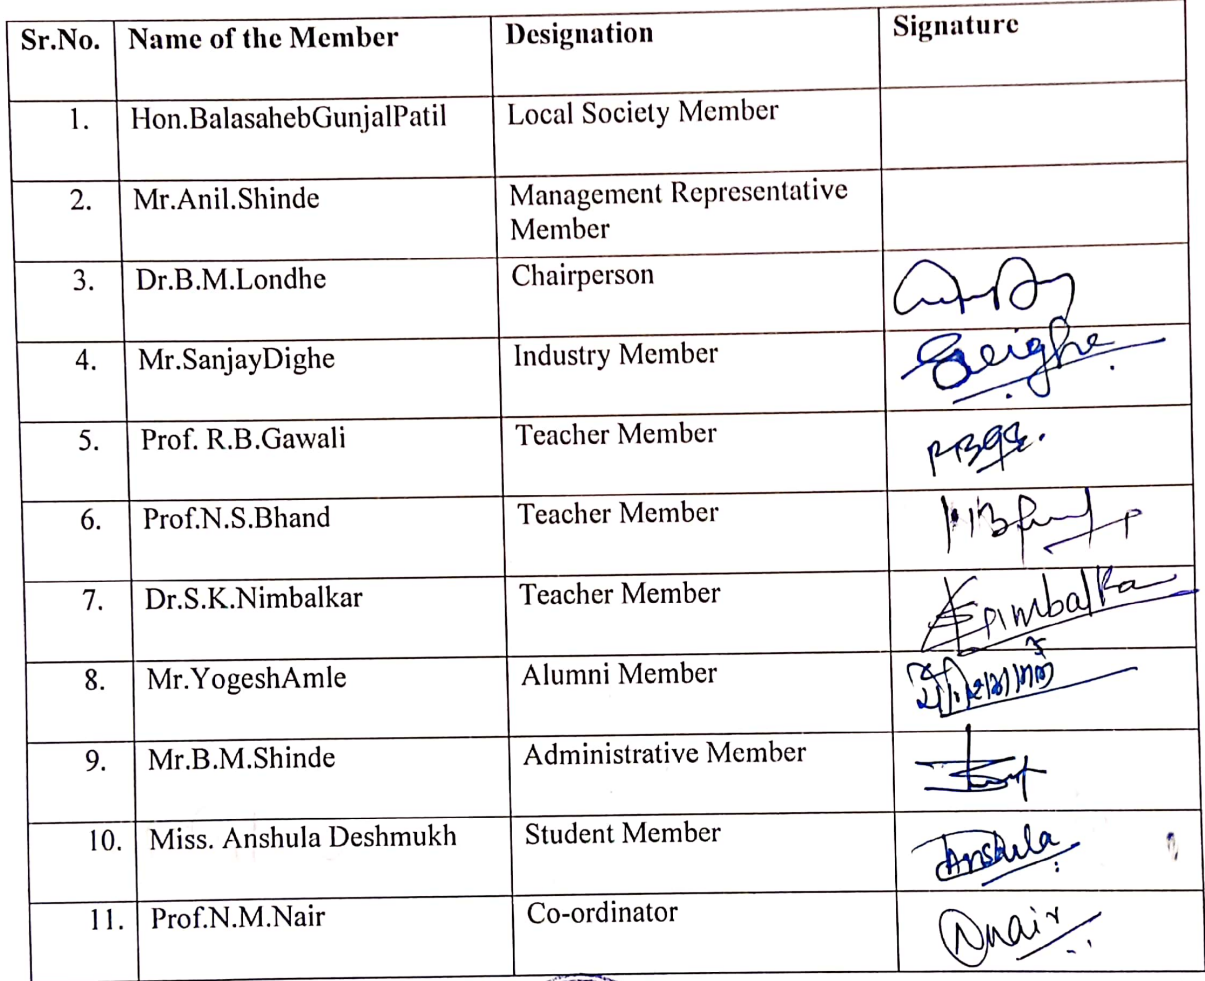 Sr.No. Name of the Member Designation Signature
1. Hon.BalasahebGunjalPatil Local Society Member
2. Mr.Anil.Shinde Management Representative
Member
3. Dr.B.M.Londhe Chairperson
4. Mr.SanjayDighe Industry Member
5. Prof. R.B.Gawali Teacher Member
6. Prof.N.S.Bhand Teacher Member
7. Dr.S.K.Nimbalkar Teacher Member
8. Mr.YogeshAmle Alumni Member
9. Mr.B.M.Shinde Administrative Member
10. Miss. Anshula Deshmukh Student Member Anshula
11. Prof.N.M.Nair Co-ordinator Nnair